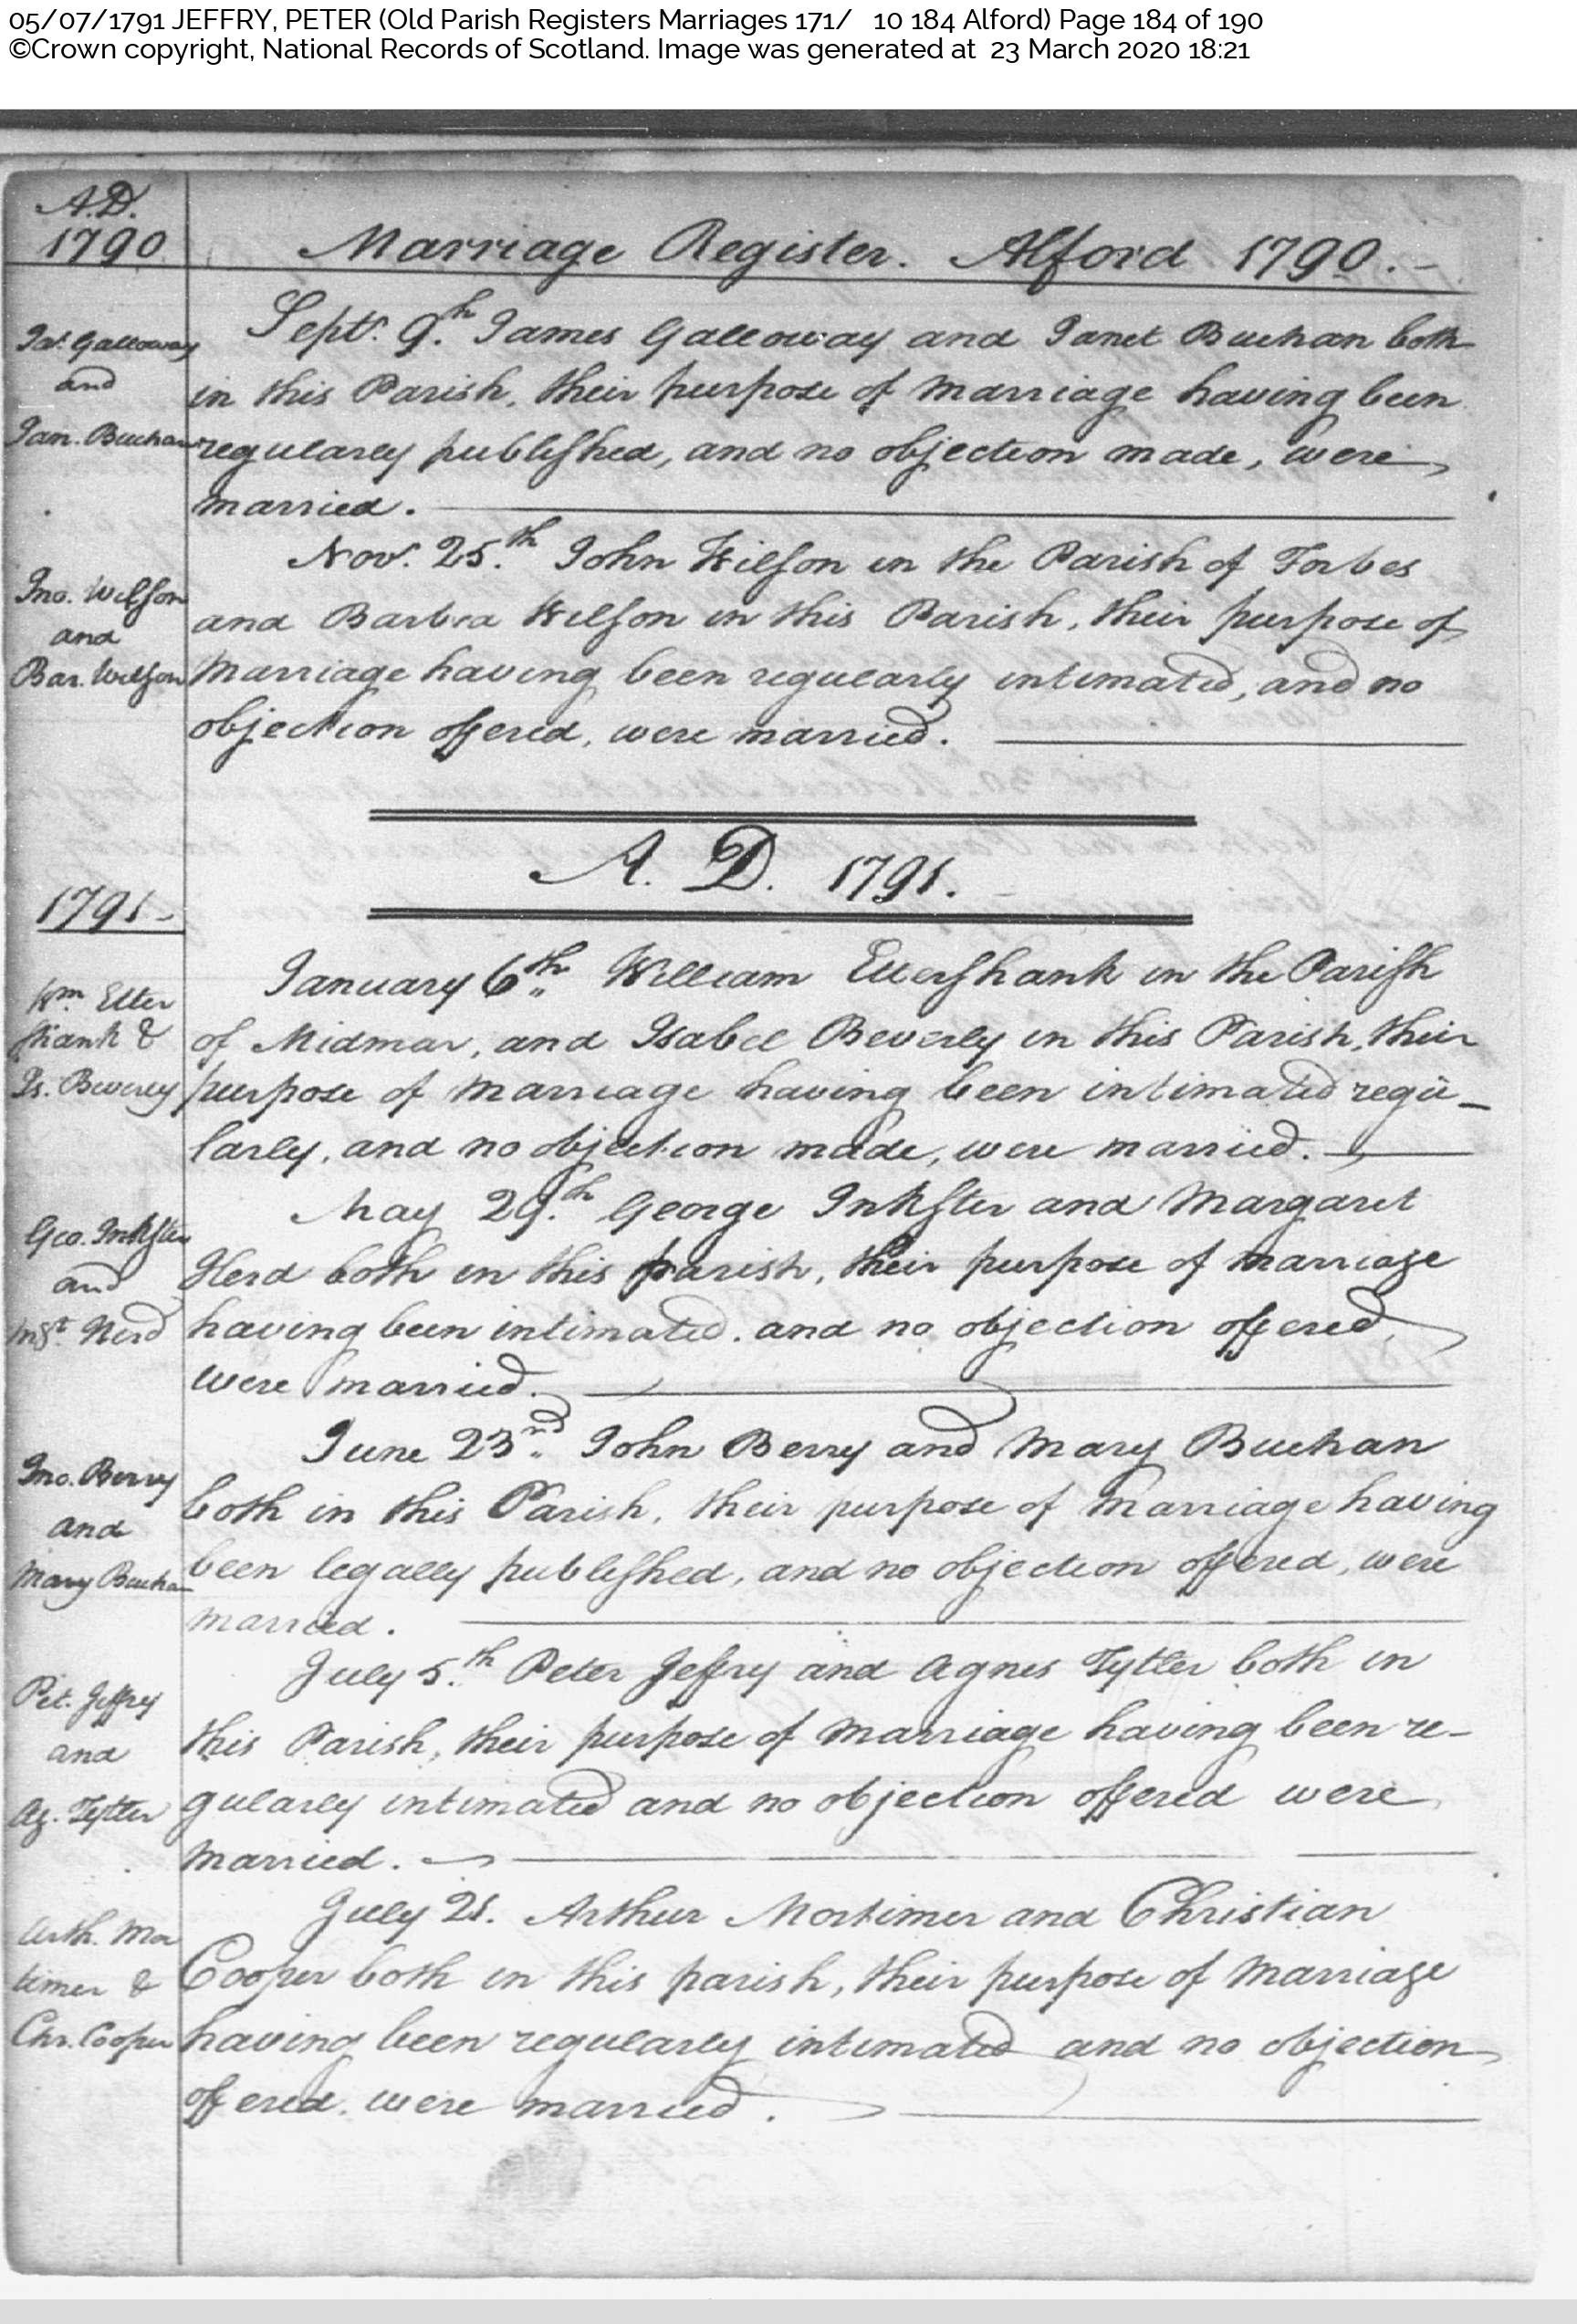 05/07/1791 JEFFRY, PETER (Old Parish Registers Marriages 171/ 10 184 Alford) Page 184 of 190
©Crown copyright, National Records of Scotland. Image was generated at 23 March 2020 18:21
A.D.
1790
Marriage Register. Alford 1790.
Jas. Galloway
and
Jan. Buchan
Septr. 9th. James Galloway and Janet Buchan both
in this Parish, their purpose of marriage having been
regularly publeſhed, and no objection made, were
married.
Jno. Wilſon
and
Bar. Wilſon
Nov. 25th. John Wilſon in the Parish of Forbes
and Barbra Wilſon in this Parish, their purpose of
marriage having been regularly intimated, and no
objection offered, were married.
A. D. 1791.
1791
Wm. Etter
ſhank &
Is. Beverly
January 6th. William Etterſhank in the Pariſh
of Midmar, and Isabel Beverly in this Parish, their
purpose of marriage having been intimated regu-
larly, and no objection made, were married.
Geo. Inkſter
and
Mgt. Herd
May 29th. George Inkſter and Margaret
Herd both in this parish, their purpose of marriage
having been intimated, and no objection offered,
were married.
Jno. Berry
and
Mary Bucha
June 23nd. John Berry and Mary Buchan
both in this Parish, their purpose of marriage having
been legally publeſhed, and no objection offered, were
married.
Pet. Jeffrey
and
Ag. Tytler
July 5th. Peter Jeffry and Agnes Tytler both in
this Parish, their purpose of marriage having been re-
gularly intimated and no objection offered were
married.
Arth. Mor
timer &
Chr. Cooper
July 21. Arthur Mortimer and Christian
Cooper both in this parish, their purpose of marriage
having been regularly intimated and no objection
offered, were married.